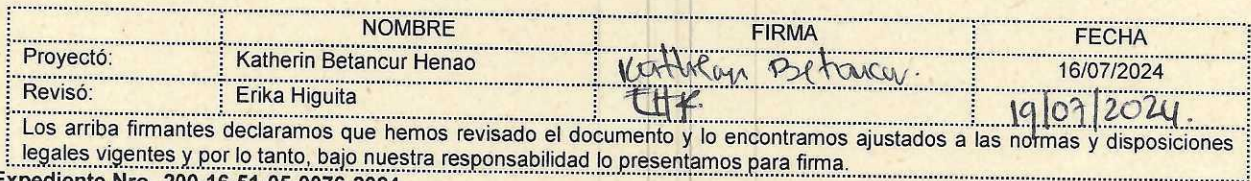 NOMBRE FIRMA FECHA
Proyectó: Katherin Betancur Henao Katherin Betancur. 16/07/2024
Revisó: Erika Higuita EHR. 19/07/2024.
Los arriba firmantes declaramos que hemos revisado el documento y lo encontramos ajustados a las normas y disposiciones
legales vigentes y por lo tanto, bajo nuestra responsabilidad lo presentamos para firma.
Expediente Nro. 200-16-51-05-0076-2024